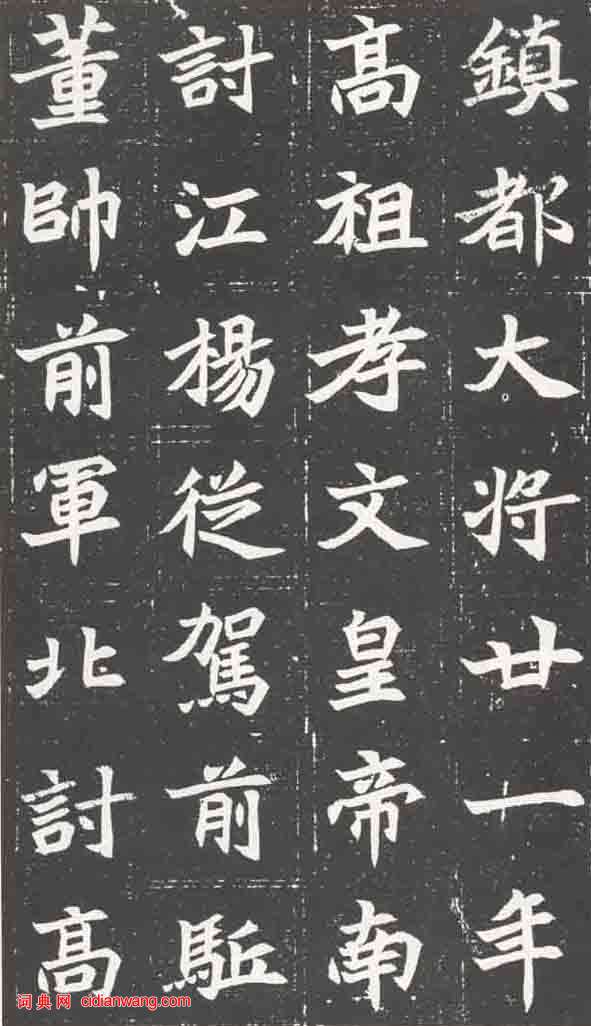 鎮都大将廿一年
高祖孝文皇帝南
討江楊従駕前駈
董帥前軍北討高
词典网 cidianwang.com